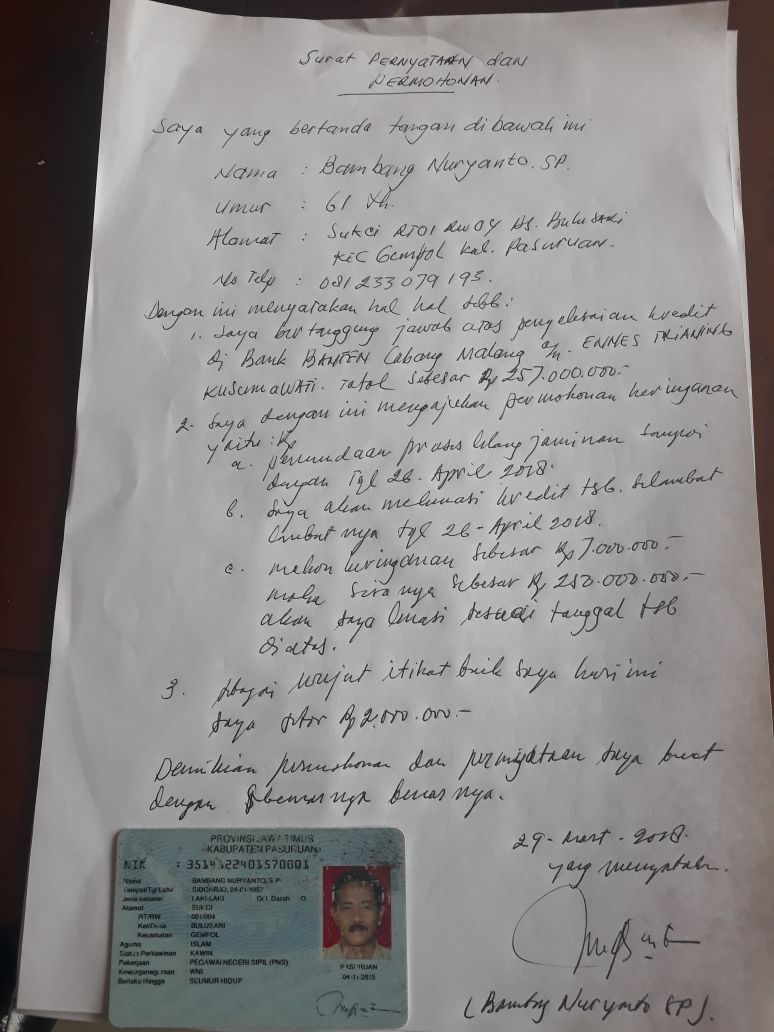 Surat PERNYATAAN dan
PERMOHONAN.
Saya yang bertanda tangan dibawah ini
Nama : Bambang Nuryanto. SP.
Umur : 61 Th.
Alamat : Sukci RT01 RW04 Ds. Bulusari
KEC Gempol Kab. Pasuruan.
No Telp : 081 233 079 193.
Dengan ini menyatakan hal hal sbb:
1. Saya bertanggung jawab atas penyelesaian kredit
di Bank BANTEN Cabang Malang a/n. ENNES TRIANING
KUSUMAWATI. Total sebesar Rp 257.000.000.-
2. Saya dengan ini mengajukan permohonan keringanan
yaitu : Rp
a. penundaan proses lelang jaminan sampai
dengan Tgl 26. April 2018.
b. Saya akan melunasi kredit tsb. selambat
lambatnya tgl 26 - April 2018.
c. mohon keringanan sebesar Rp 7.000.000.-
maka sisanya sebesar Rp 250.000.000.-
akan saya lunasi sesuai tanggal tsb
diatas.
3. Sebagai wujut itikat baik saya hari ini
saya setor Rp 2.000.000.-
Demikian permohonan dan pernyataan saya buat
dengan sebenarnya benarnya.
29 - Maret - 2018.
yang menyatakan.
(Bambang Nuryanto SP).
PROVINSI JAWA TIMUR
KABUPATEN PASURUAN
NIK : 3514122401570001
Nama : BAMBANG NURYANTO, S.P.
Tempat/Tgl Lahir : SIDOARJO, 24-01-1957
Jenis kelamin : LAKI-LAKI Gol. Darah : O
Alamat : SUKCI
RT/RW : 001/004
Kel/Desa : BULUSARI
Kecamatan : GEMPOL
Agama : ISLAM
Status Perkawinan : KAWIN
Pekerjaan : PEGAWAI NEGERI SIPIL (PNS)
Kewarganegaraan : WNI
Berlaku Hingga : SEUMUR HIDUP
PASURUAN
04-11-2015